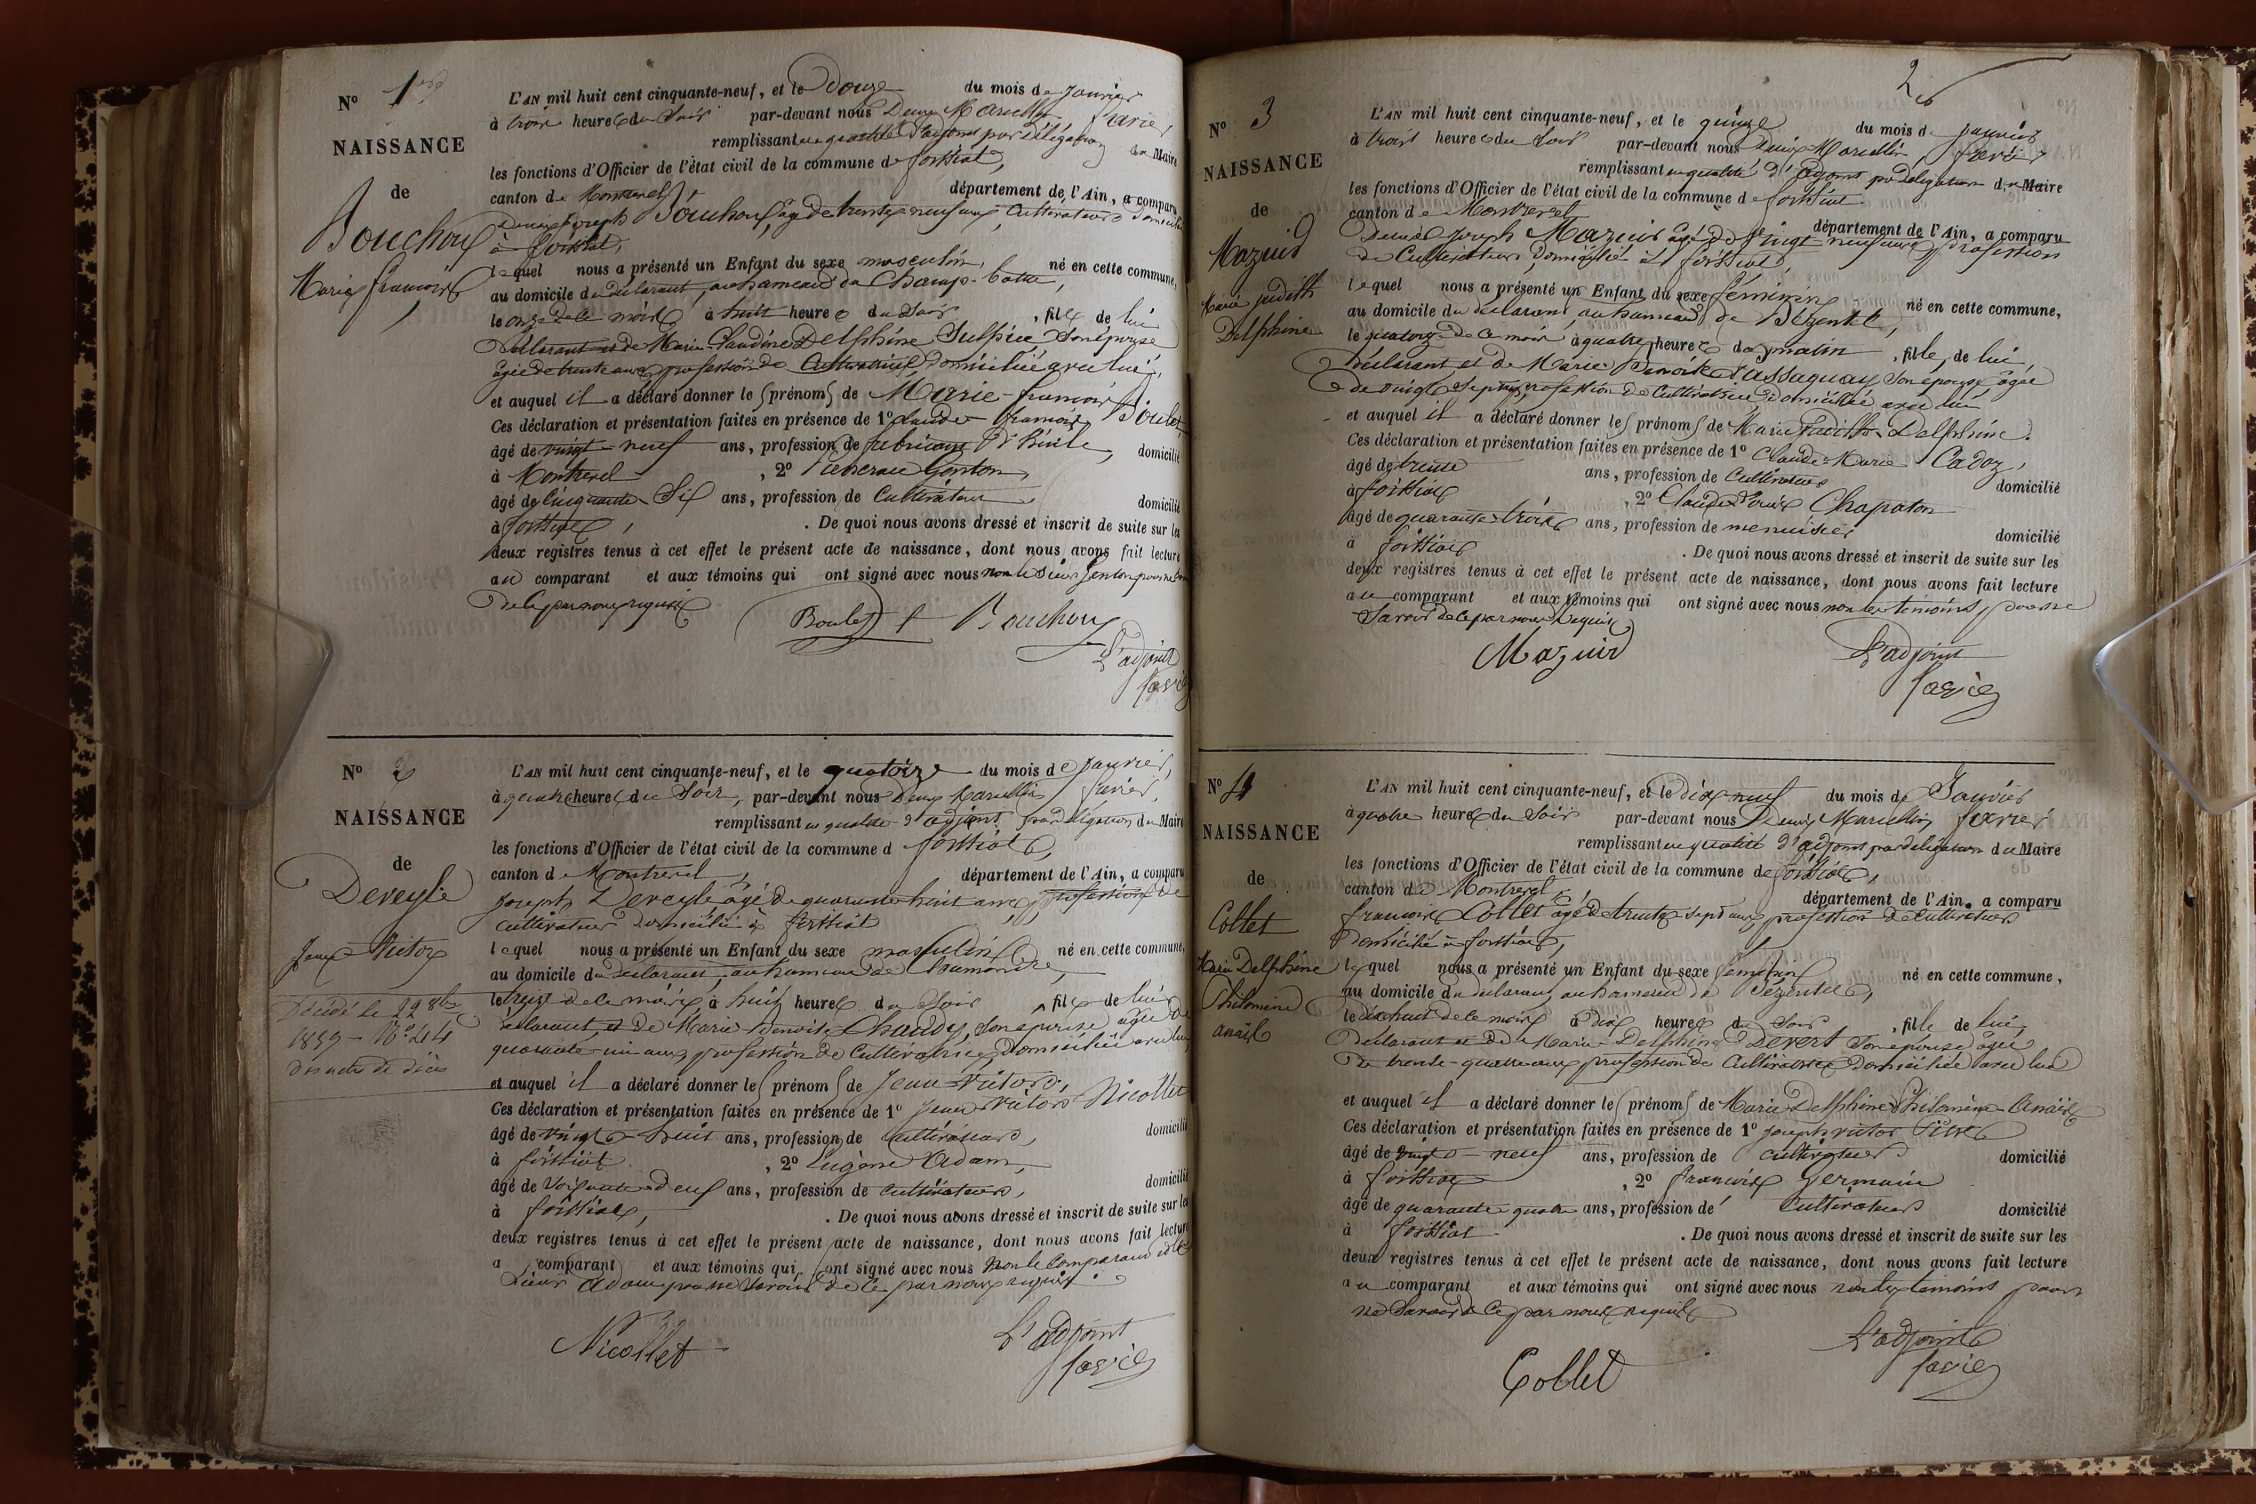 N° 1er
NAISSANCE
de
Bouchoux
Marie françois
L'AN mil huit cent cinquante-neuf, et le Douze du mois de Janvier
à trois heures du Soir par-devant nous Denis Marcellin favier
remplissant en qualité d'adjoint par délégation du Maire
les fonctions d'Officier de l'état civil de la commune de foissiat,
canton de Montrevel, département de l'Ain, a comparu
Denis Joseph Bouchoux, âgé de trente neuf ans, Cultivateur Domicilié
à foissiat,
lequel nous a présenté un Enfant du sexe masculin, né en cette commune,
au domicile du déclarant, au hameau de Champ-
le onze de ce mois à huit heures du Soir, fils de lui
Déclarant et de Marie Claudine Delphine Sulpice, Son épouse
âgée de trente ans, profession de Cultivatrice, Domiciliée avec lui,
et auquel il a déclaré donner les prénoms de Marie-françois
Ces déclaration et présentation faites en présence de 1° Claude françois Boulet,
âgé de vingt-neuf ans, profession de fabricant d'huile, domicilié
à Montrevel, 2° Gonton,
âgé de Cinquante-Six ans, profession de Cultivateur domicilié
à foissiat, . De quoi nous avons dressé et inscrit de suite sur les
deux registres tenus à cet effet le présent acte de naissance, dont nous avons fait lecture
au comparant et aux témoins qui ont signé avec nous non le Sieur Gonton pour ne
de ce par nous requis
Boulet Bouchoux
L'adjoint
favier
N° 2
NAISSANCE
de
Deveyle
Jean Victor
Décédé le 22 8bre
1859 - N° 44
des actes de décès
L'AN mil huit cent cinquante-neuf, et le quatorze du mois de Janvier,
à quatre heures du Soir, par-devant nous Denis Marcellin favier,
remplissant en qualité d'adjoint par délégation du Maire
les fonctions d'Officier de l'état civil de la commune d foissiat,
canton de Montrevel, département de l'Ain, a comparu
Joseph Deveyle âgé de quarante huit ans, profession de
cultivateur domicilié à foissiat
lequel nous a présenté un Enfant du sexe masculin, né en cette commune,
au domicile du déclarant, au hameau de Chamandre,
le treize de ce mois à huit heures du Soir, fils de lui
déclarant, et de Marie Benoite Chaudy, Son épouse âgée de
quarante-un ans profession de Cultivatrice, Domiciliée avec lui,
et auquel il a déclaré donner les prénoms de Jean-Victor,
Ces déclaration et présentation faites en présence de 1° Jean Victor Nicollet
âgé de vingt-huit ans, profession de Cultivateur, domicilié
à foissiat, 2° Eugène Adam,
âgé de Soixante deux ans, profession de cultivateur, domicilié
à foissiat, . De quoi nous avons dressé et inscrit de suite sur les
deux registres tenus à cet effet le présent acte de naissance, dont nous avons fait lecture
a comparant et aux témoins qui ont signé avec nous non le comparant et le
Sieur Adam pour ne savoir de ce par nous requis.
Nicollet
L'adjoint
favier
2
N° 3
NAISSANCE
de
Mazuid
Marie judith
Delphine
L'AN mil huit cent cinquante-neuf, et le quinze du mois de janvier
à trois heures du Soir par-devant nous Denis Marcellin favier
remplissant en qualité d'adjoint par délégation du Maire
les fonctions d'Officier de l'état civil de la commune de foissiat
canton de Montrevel département de l'Ain, a comparu
Denis Joseph Mazuid âgé de vingt neuf ans profession
de Cultivateur, domicilié à foissiat,
lequel nous a présenté un Enfant du sexe féminin né en cette commune,
au domicile du déclarant, au hameau de Bézentel,
le quatorze de ce mois à quatre heures du matin, fille de lui
Déclarant et de Marie Benoite Vassaquay Son épouse âgée
de vingt Sept ans, profession de Cultivatrice domiciliée avec lui
et auquel il a déclaré donner les prénoms de Marie Judith Delphine.
Ces déclaration et présentation faites en présence de 1° Claude Marie Cadoz,
âgé de trente ans, profession de Cultivateur domicilié
à foissiat, 2° Claude Chapaton
âgé de quarante-trois ans, profession de menuisier domicilié
à foissiat . De quoi nous avons dressé et inscrit de suite sur les
deux registres tenus à cet effet le présent acte de naissance, dont nous avons fait lecture
au comparant et aux témoins qui ont signé avec nous non les témoins, pour ne
Savoir de ce par nous Requis
Mazuid
L'adjoint
favier
N° 4
NAISSANCE
de
Collet
Marie Delphine
Philomène
anaïs
L'AN mil huit cent cinquante-neuf, et le dix neuf du mois de Janvier
à quatre heures du Soir par-devant nous Denis Marcellin favier
remplissant en qualité d'adjoint par délégation du Maire
les fonctions d'Officier de l'état civil de la commune de foissiat,
canton de Montrevel département de l'Ain, a comparu
françois Collet âgé de trente sept ans, profession de Cultivateur
domicilié à foissiat,
lequel nous a présenté un Enfant du sexe féminin né en cette commune,
au domicile du déclarant, au hameau de Bézentel,
le dix huit de ce mois à dix heures du Soir, fille de lui
Déclarant et de Marie Delphine Devert Son épouse âgée
de trente-quatre ans profession de Cultivatrice Domiciliée avec lui
et auquel il a déclaré donner les prénoms de Marie Delphine Philomène Anaïs
Ces déclaration et présentation faites en présence de 1° Joseph victor
âgé de vingt-neuf ans, profession de Cultivateur domicilié
à foissiat, 2° françois Germain
âgé de quarante quatre ans, profession de Cultivateur domicilié
à foissiat . De quoi nous avons dressé et inscrit de suite sur les
deux registres tenus à cet effet le présent acte de naissance, dont nous avons fait lecture
au comparant et aux témoins qui ont signé avec nous non les témoins pour
ne Savoir de ce par nous requis
Collet
L'adjoint
favier